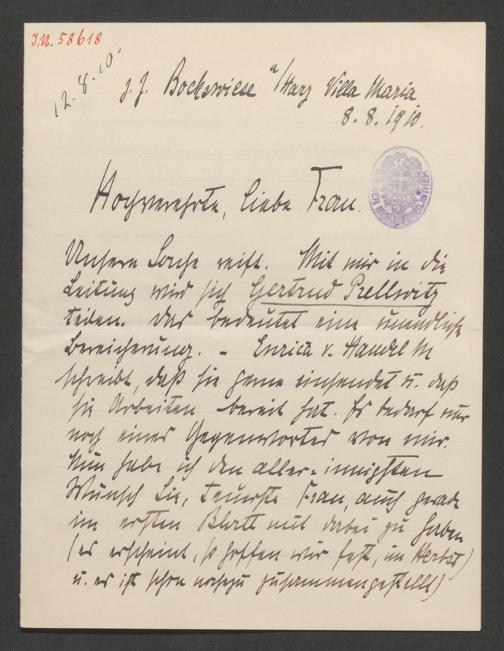 I.N. 58618
12.8.10.
z. Z. Bockswiese a/Harz Villa Maria
8. 8. 1910.
Hochverehrte, liebe Frau.
Unsere Sache reift. Mit mir in die
Leitung wird sich Gertrud Prellwitz
teilen. Das bedeutet eine unendliche
Bereicherung. – Enrica v. Handel M
schreibt, daß sie gerne einsendet u. daß
sie Arbeiten bereit hat. Es bedarf nur
noch eines Gegenwortes von mir.
Nun habe ich den aller-innigsten
Wunsch Sie, teuerste Frau, auch gerade
im ersten Blatt mit dabei zu haben
(es erscheint, so hoffen wir fest, im Herbst)
u. es ist schon nahezu zusammengestellt)